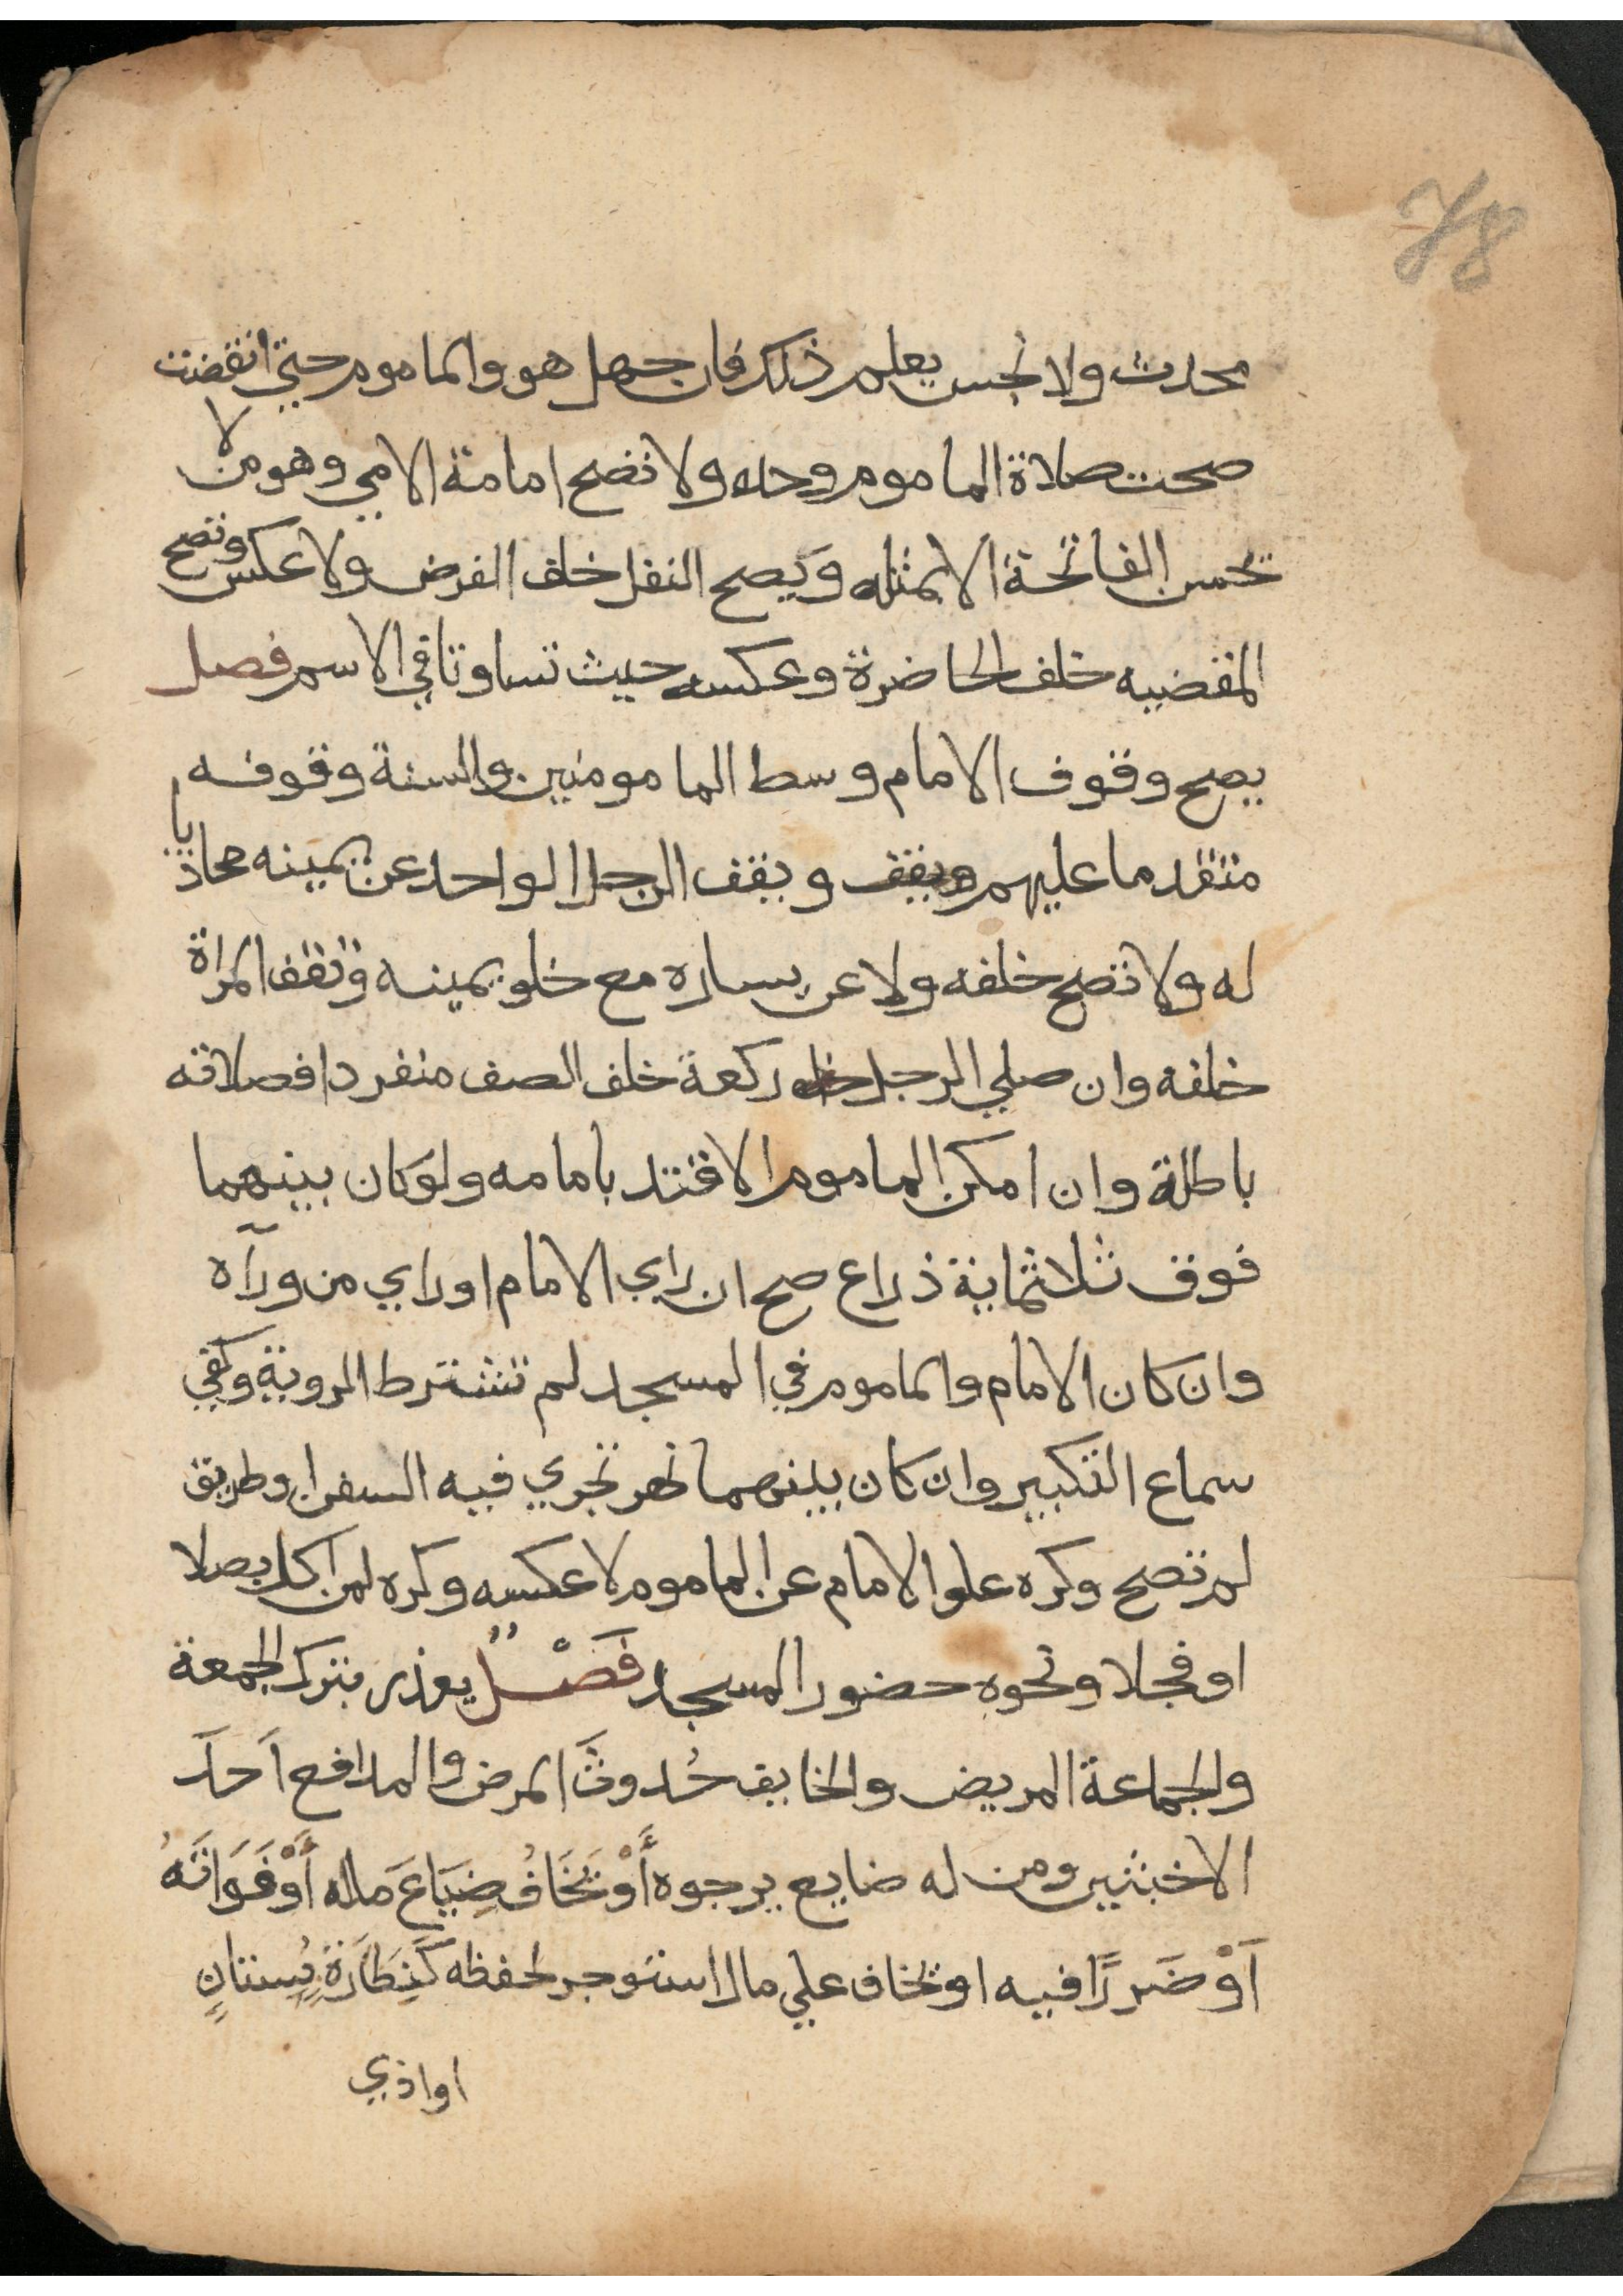 78
محدث ولا نجس يعلم ذلك فان جهل هو والماموم حتي انقضت
صحت صلاة الماموم وحده ولا تصح امامة الامي وهو من لا
تحسن الفاتحة الا بمثله وَيَصح النفل خلف الفرض ولا عكس وتصح
المقضيه خلف الحاضرة وعكسه حيث تساوتا في الاسم فصل
يصح وقوف الامام وسط المامومنين والسنة وقوفه
متقدما عليهم ويقف الرجل الواحد عن يمينه محاذيا
له ولا تصح خلفه ولا عن يساره مع خلو يمينه وتقف المراة
خلفه وان صلي الرجل ركعة خلف الصف منفردا فصلاته
باطلة وان امكن الماموم الاقتد بامامه ولو كان بينهما
فوق ثلاثماية ذراع صح ان راي الامام او راي من ورآه
وان كان الامام والماموم في المسجد لم تشترط الروية وكفي
سماع التكبير وان كان بينهما نهر تجري فيه السفن او طريق
لم تصح وكره علو الامام عن الماموم لا عكسه وكره لمن اكل بصلا
او فجلا ونحوه حضور المسجد فَصْلٌ يعذر بترك الجمعة
والجماعة المريض والخايف حُدوثَ المرض والمدافع اَحدَ
الاخبثين ومن له ضايع يرجوه أَوْ يَخَافُ ضِيَاعَ ماله أَوْ فَوَاتَهُ
اَوْ ضَررًا فيه او يخاف علي مال استوجر لحفظه كَنِطَارَةِ بُستانٍ
او اذي